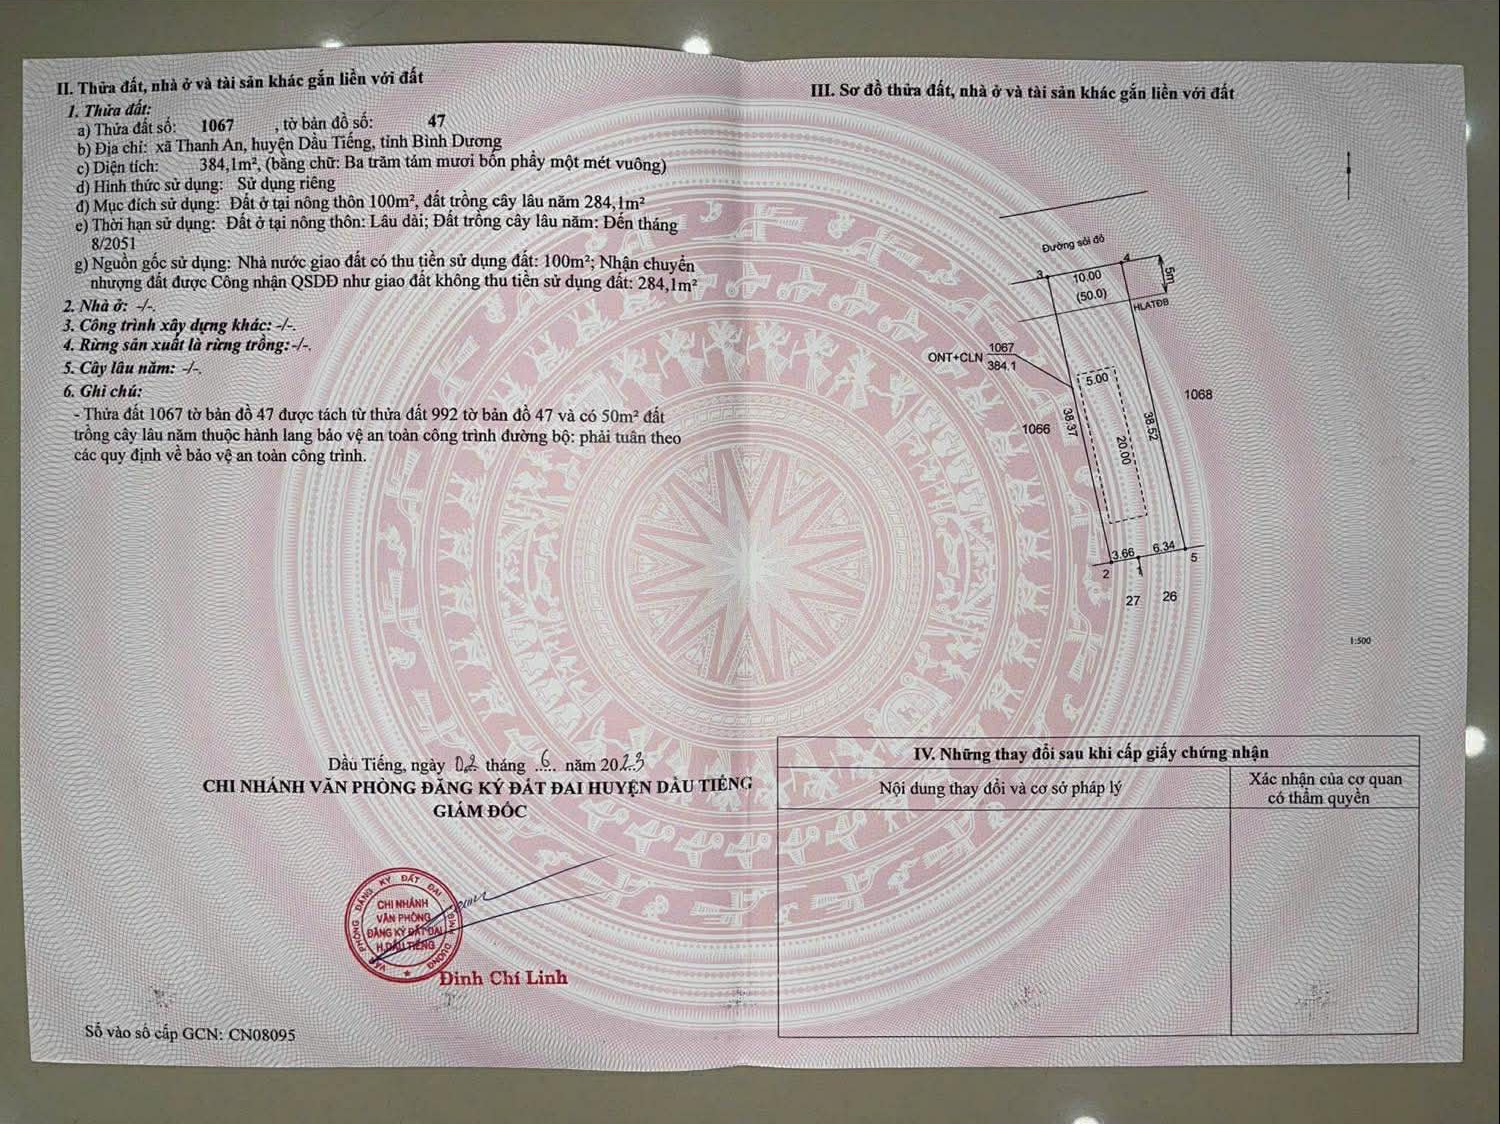 II. Thửa đất, nhà ở và tài sản khác gắn liền với đất
1. Thửa đất:
a) Thửa đất số: 1067 , tờ bản đồ số: 47
b) Địa chỉ: xã Thanh An, huyện Dầu Tiếng, tỉnh Bình Dương
c) Diện tích: 384,1m², (bằng chữ: Ba trăm tám mươi bốn phẩy một mét vuông)
d) Hình thức sử dụng: Sử dụng riêng
đ) Mục đích sử dụng: Đất ở tại nông thôn 100m², đất trồng cây lâu năm 284,1m²
e) Thời hạn sử dụng: Đất ở tại nông thôn: Lâu dài; Đất trồng cây lâu năm: Đến tháng
8/2051
g) Nguồn gốc sử dụng: Nhà nước giao đất có thu tiền sử dụng đất: 100m²; Nhận chuyển
nhượng đất được Công nhận QSDĐ như giao đất không thu tiền sử dụng đất: 284,1m²
2. Nhà ở: -/-.
3. Công trình xây dựng khác: -/-.
4. Rừng sản xuất là rừng trồng: -/-.
5. Cây lâu năm: -/-.
6. Ghi chú:
- Thửa đất 1067 tờ bản đồ 47 được tách từ thửa đất 992 tờ bản đồ 47 và có 50m² đất
trồng cây lâu năm thuộc hành lang bảo vệ an toàn công trình đường bộ: phải tuân theo
các quy định về bảo vệ an toàn công trình.
Dầu Tiếng, ngày 02 tháng 6 năm 2023
CHI NHÁNH VĂN PHÒNG ĐĂNG KÝ ĐẤT ĐAI HUYỆN DẦU TIẾNG
GIÁM ĐỐC
VĂN PHÒNG ĐĂNG KÝ ĐẤT ĐAI BÌNH DƯƠNG
CHI NHÁNH
VĂN PHÒNG
ĐĂNG KÝ ĐẤT ĐAI
H.DẦU TIẾNG
Đinh Chí Linh
Số vào sổ cấp GCN: CN08095
III. Sơ đồ thửa đất, nhà ở và tài sản khác gắn liền với đất
Đường sỏi đỏ
3
10.00
4
5m
(50.0)
HLATĐB
ONT+CLN 1067
384.1
5.00
1068
1066
38.37
38.52
20.00
3.66
6.34
2
1
5
27
26
1:500
IV. Những thay đổi sau khi cấp giấy chứng nhận
Nội dung thay đổi và cơ sở pháp lý
Xác nhận của cơ quan
có thẩm quyền